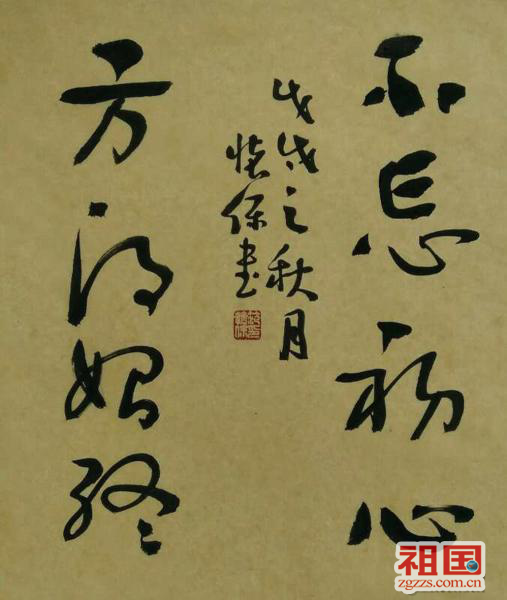 不忘初心
方得始终
戊戌之秋月
慎保书
祖国
zgzzs.com.cn